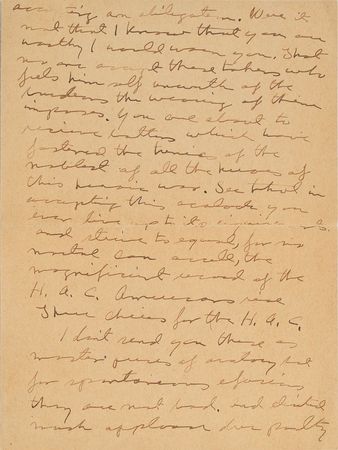 an obligation. Were it
not that I know that you are
worthy I would warn you. That
no one accept these tokens who
feels himself unworth of the
burdens the wearing of them
imposes. You are about to
receive which have
fastened the tunics of the
noblest of all the heroes of
this war. See to it in
accepting this you
ever live up to its
and strive to equal, for no
mortal can excell, the
magnificient record of the
H. A. C. Americans rise
Three cheers for the H. A. C.
I don't send you these as
master pieces of oratory but
for spontaneous efusions
they are not bad. and elicited
much applause due partly